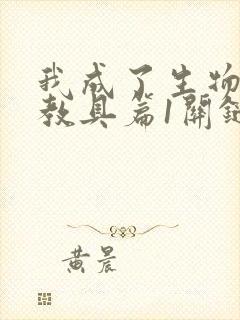 我成了生物
教具篇1關鍵
黃晨